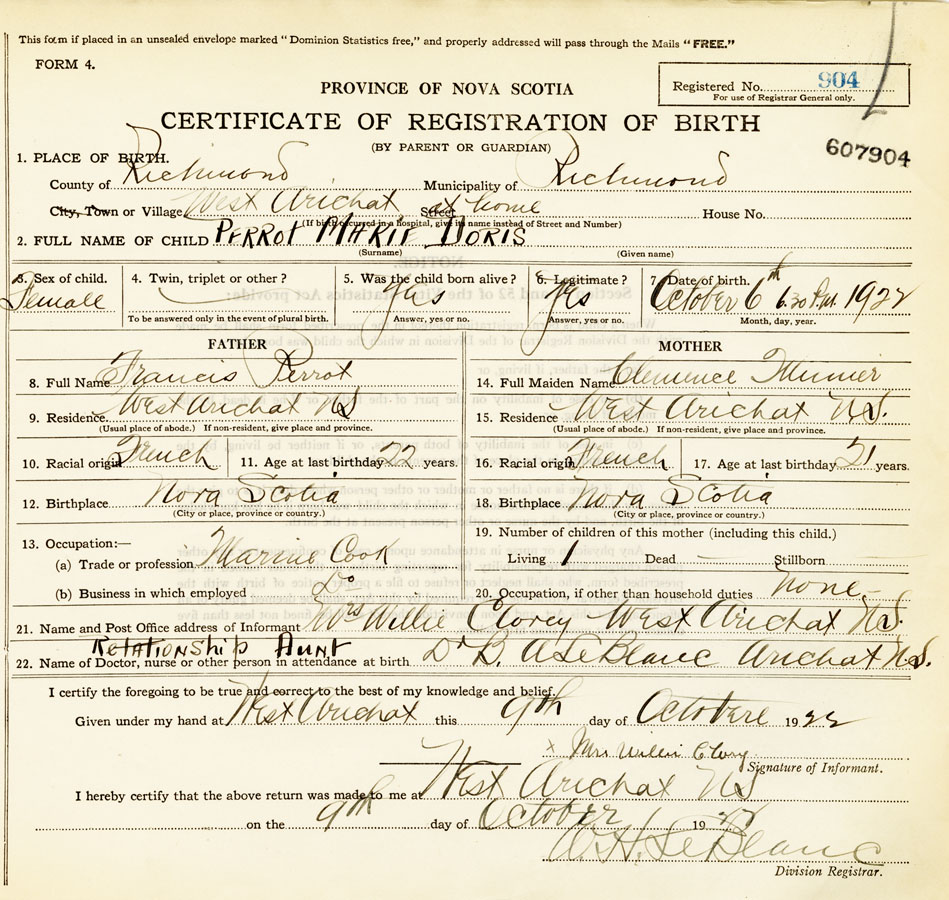 This form if placed in an unsealed envelope marked "Dominion Statistics free," and properly addressed will pass through the Mails "FREE."
FORM 4.
Registered No. 904
For use of Registrar General only.
PROVINCE OF NOVA SCOTIA
CERTIFICATE OF REGISTRATION OF BIRTH
(BY PARENT OR GUARDIAN)
607904
1. PLACE OF BIRTH.
County of Richmond Municipality of Richmond
City, Town or Village West Arichat Street at home House No.
(If birth occurred in a hospital, give its name instead of Street and Number)
2. FULL NAME OF CHILD PERROT MARIE DORIS
(Surname) (Given name)
3. Sex of child. 4. Twin, triplet or other? 5. Was the child born alive? 6. Legitimate? 7. Date of birth.
Female Yes Yes October 6th 6.30 P.M. 1922
To be answered only in the event of plural birth. Answer, yes or no. Answer, yes or no. Month, day, year.
FATHER MOTHER
8. Full Name Francis Perrot 14. Full Maiden Name Clemence
9. Residence West Arichat NS 15. Residence West Arichat N.S.
(Usual place of abode.) If non-resident, give place and province. (Usual place of abode.) If non-resident, give place and province.
10. Racial origin French 11. Age at last birthday 22 years. 16. Racial origin French 17. Age at last birthday 21 years.
12. Birthplace Nova Scotia 18. Birthplace Nova Scotia
(City or place, province or country.) (City or place, province or country.)
13. Occupation:— 19. Number of children of this mother (including this child.)
(a) Trade or profession Marine Cook Living 1 Dead Stillborn
(b) Business in which employed Do 20. Occupation, if other than household duties none
21. Name and Post Office address of Informant Mrs Willie West Arichat N.S.
RELATIONSHIP AUNT
22. Name of Doctor, nurse or other person in attendance at birth Dr B. A LeBlanc Arichat N.S.
I certify the foregoing to be true and correct to the best of my knowledge and belief.
Given under my hand at West Arichat this 9th day of Octobere 1922
x Mrs Willie
Signature of Informant.
I hereby certify that the above return was made to me at West Arichat NS
on the 9th day of October 1922
LeBlanc
Division Registrar.